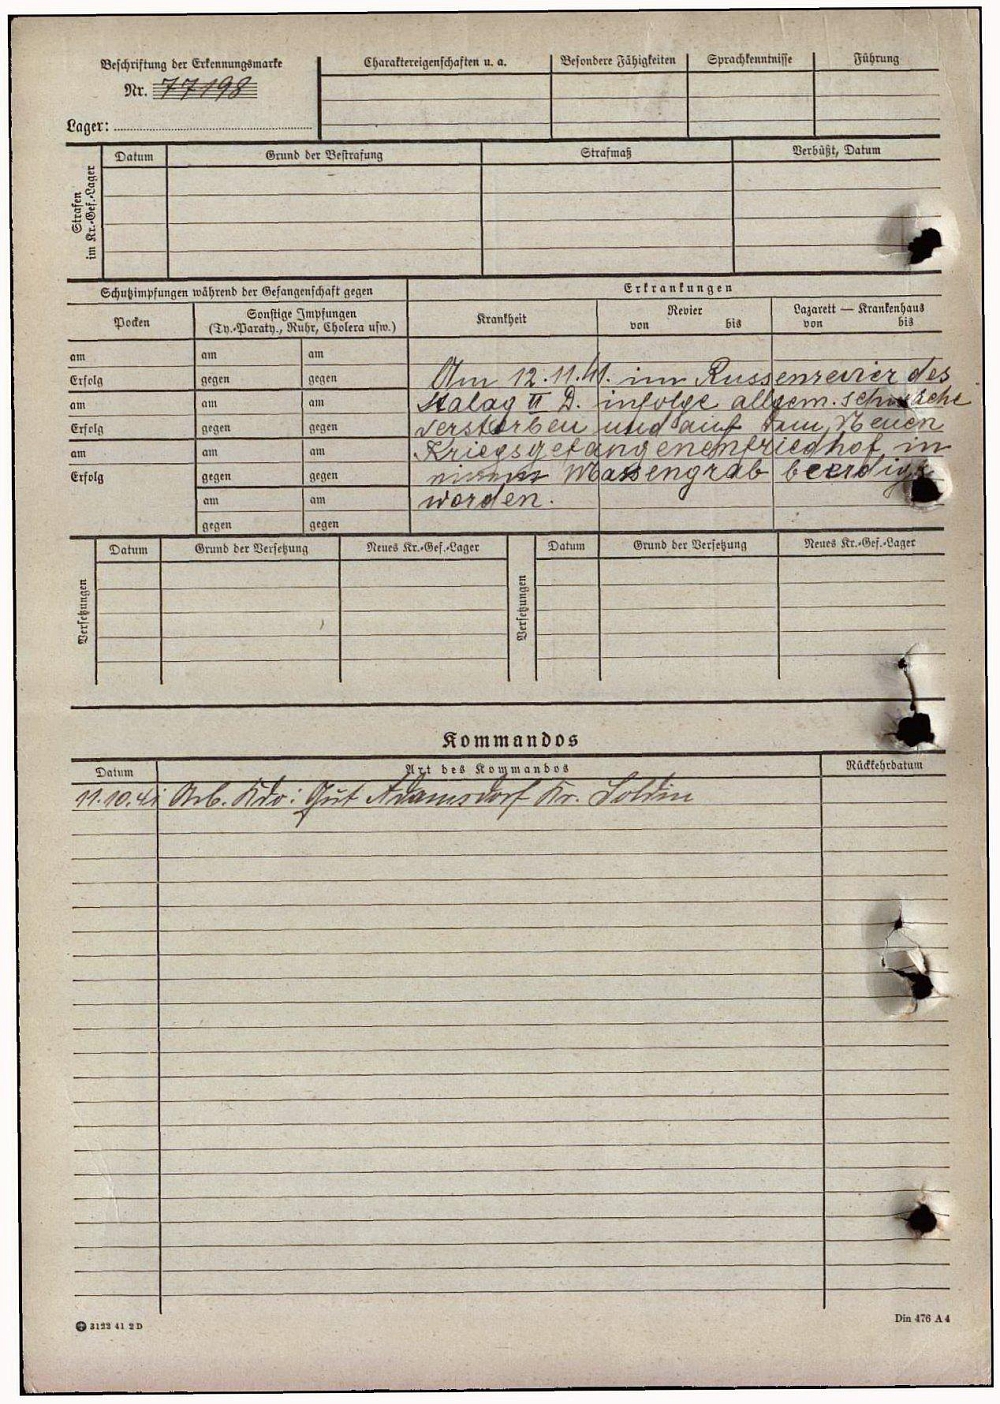 Beschriftung der Erkennungsmarke
Nr. 77198
Lager:
Charaktereigenschaften u. a.
Besondere Fähigkeiten
Sprachkenntnisse
Führung
Strafen im Kr.-Gef.-Lager
Datum
Grund der Bestrafung
Strafmaß
Verbüßt, Datum
Schutzimpfungen während der Gefangenschaft gegen
Erkrankungen
Pocken
Sonstige Impfungen
(Ty.-Paraty., Ruhr, Cholera usw.)
Krankheit
Revier
von bis
Lazarett — Krankenhaus
von bis
am am am
Erfolg gegen gegen
am am am
Erfolg gegen gegen
am am am
Erfolg gegen gegen
am am
gegen gegen
Am 12.11.41. im Russenrevier des
Stalag II D. infolge allgem. schwäche
verstorben und auf dem Neuen
Kriegsgefangenenfriedhof in
einem Massengrab beerdigt
worden.
Versetzungen
Datum
Grund der Versetzung
Neues Kr.-Gef.-Lager
Versetzungen
Datum
Grund der Versetzung
Neues Kr.-Gef.-Lager
Kommandos
Datum
Art des Kommandos
Rückkehrdatum
11.10.41 Arb. Kdo: Gut Adamsdorf Kr. Soldin
3122 41 2 D
Din 476 A 4